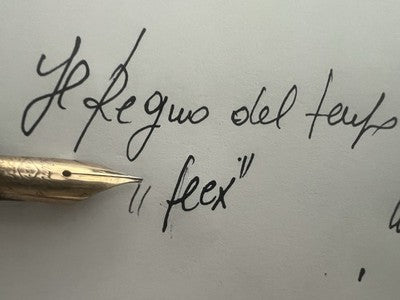 Il Regno del temp
"feex"